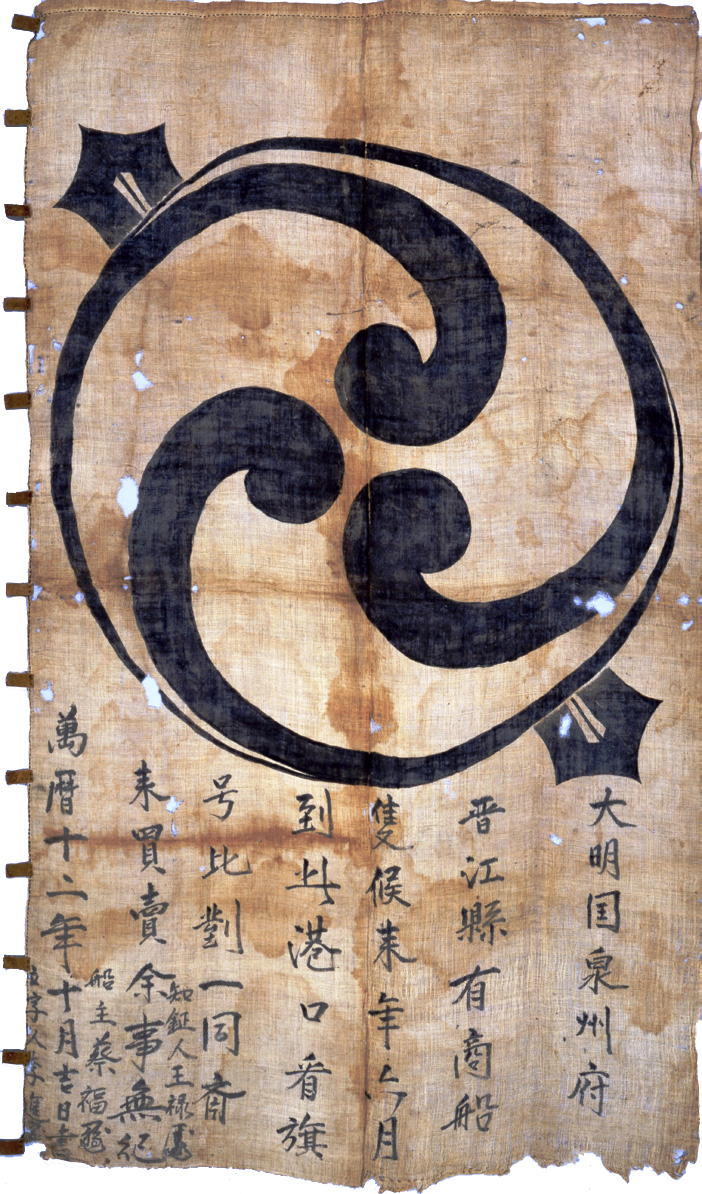 大明国泉州府
晋江縣有商船
隻候来年六月
到此港口看旗
号比對一同斎
来買賣余事無紀
知鉦人王禄
船主蔡福
萬曆十二年十月吉日